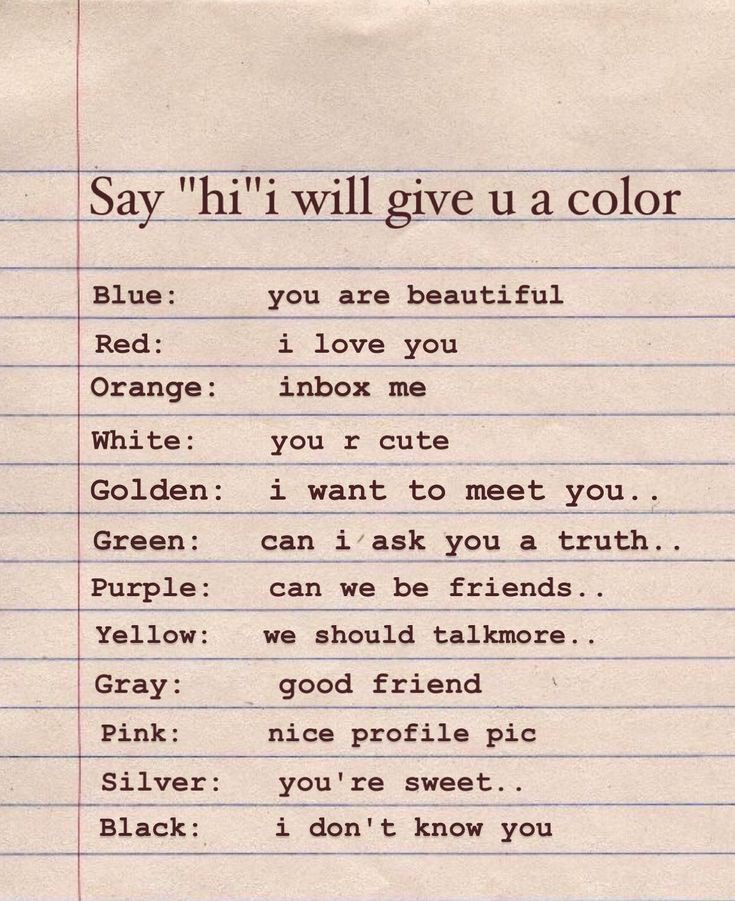 Say "hi"i will give u a color
Blue: you are beautiful
Red: i love you
Orange: inbox me
White: you r cute
Golden: i want to meet you..
Green: can i ask you a truth..
Purple: can we be friends..
Yellow: we should talkmore..
Gray: good friend
Pink: nice profile pic
Silver: you're sweet..
Black: i don't know you